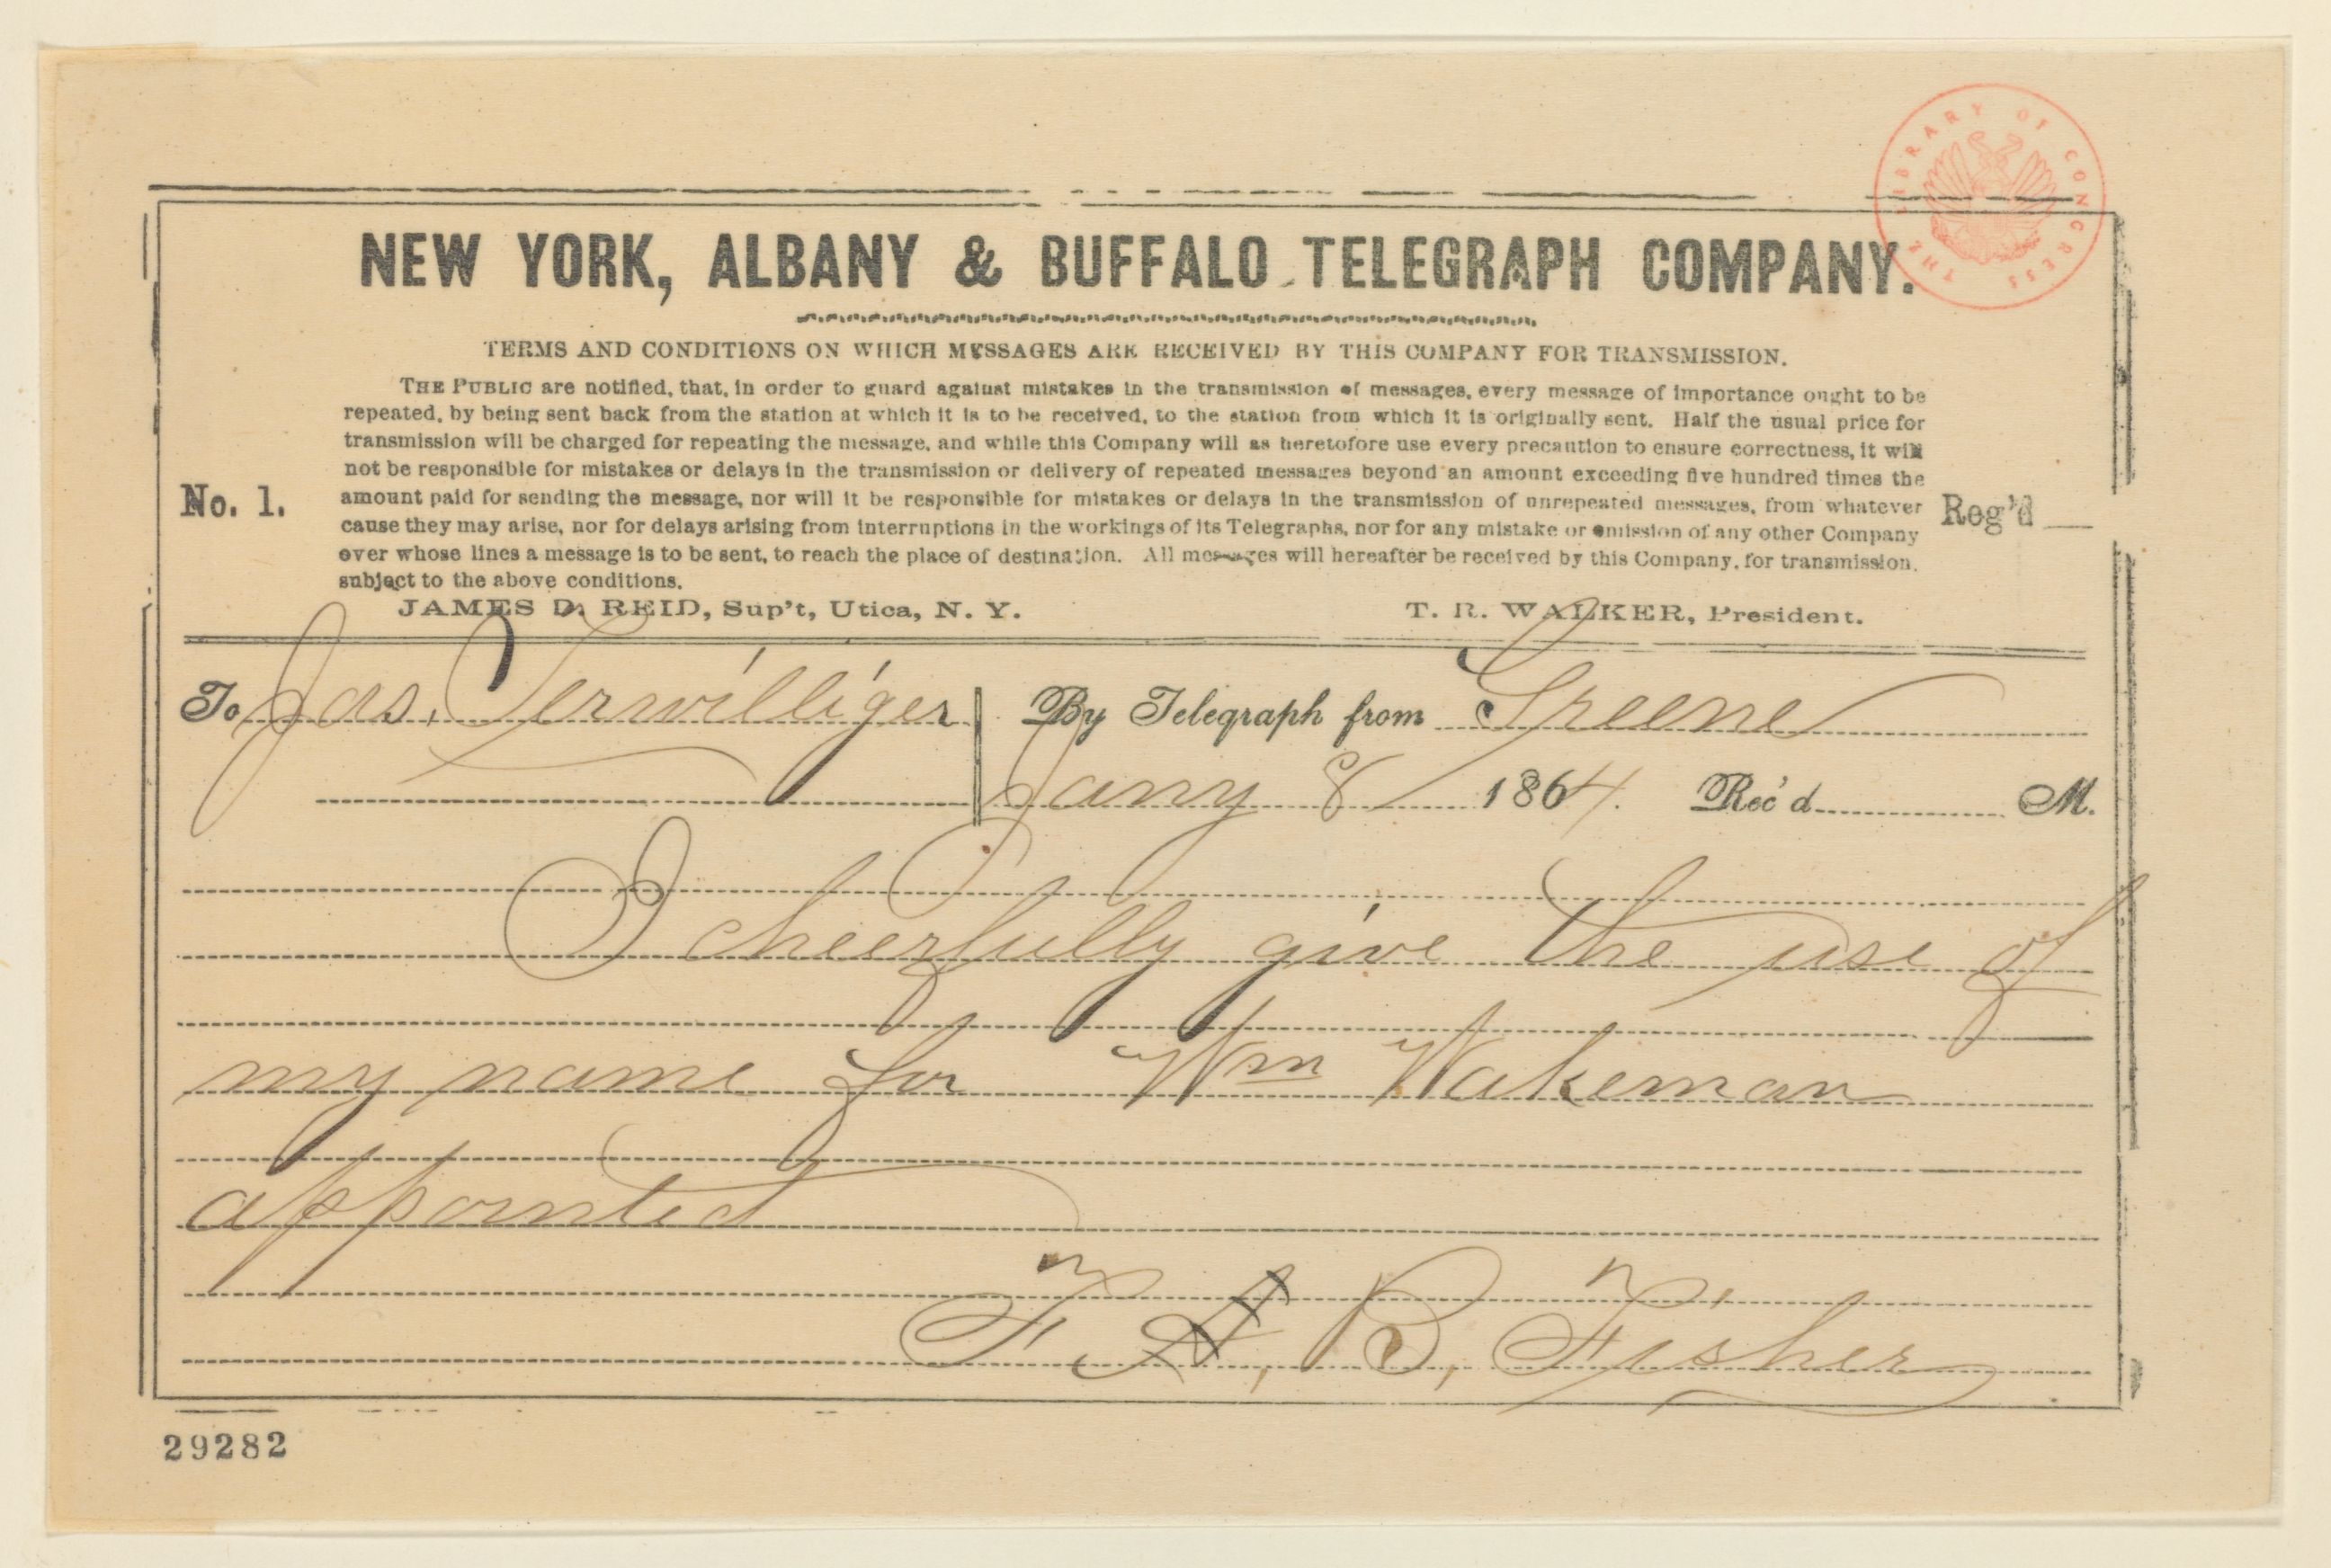 THE LIBRARY OF CONGRESS
NEW YORK, ALBANY & BUFFALO TELEGRAPH COMPANY.
TERMS AND CONDITIONS ON WHICH MESSAGES ARE RECEIVED BY THIS COMPANY FOR TRANSMISSION.
THE PUBLIC are notified, that, in order to guard against mistakes in the transmission of messages, every message of importance ought to be
repeated, by being sent back from the station at which it is to be received, to the station from which it is originally sent. Half the usual price for
transmission will be charged for repeating the message, and while this Company will as heretofore use every precaution to ensure correctness, it will
not be responsible for mistakes or delays in the transmission or delivery of repeated messages beyond an amount exceeding five hundred times the
amount paid for sending the message, nor will it be responsible for mistakes or delays in the transmission of unrepeated messages, from whatever
cause they may arise, nor for delays arising from interruptions in the workings of its Telegraphs, nor for any mistake or omission of any other Company
over whose lines a message is to be sent, to reach the place of destination. All messages will hereafter be received by this Company, for transmission,
subject to the above conditions.
No. 1.
Reg'd
JAMES D. REID, Sup't, Utica, N. Y. T. R. WALKER, President.
To Jas. Terwilliger By Telegraph from Greene
Jany 8 1864. Rec'd M.
I cheerfully give the use of
my name for Wm Wakeman
appointed
F. A, B, Fisher
29282